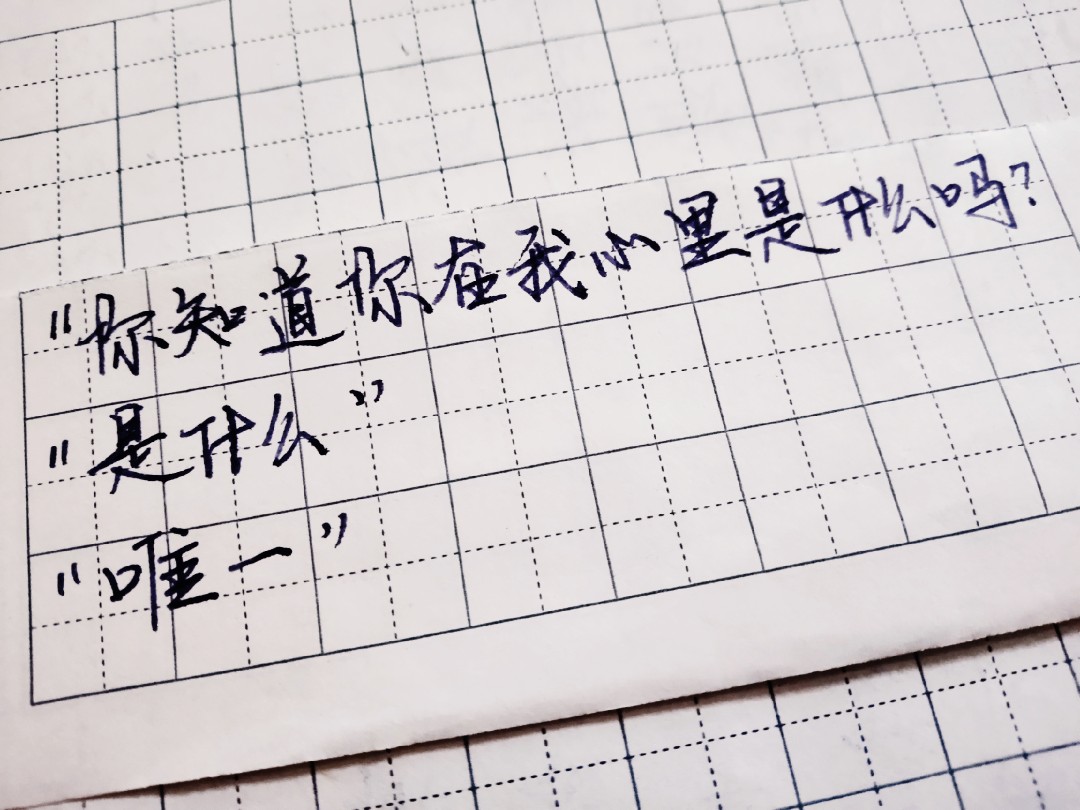 "你知道你在我心里是什么吗?
"是什么"
"唯一"